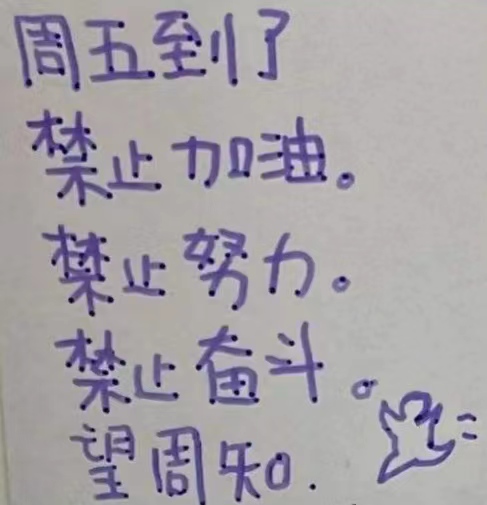 周五到了
禁止加油。
禁止努力。
禁止奋斗。
望周知.